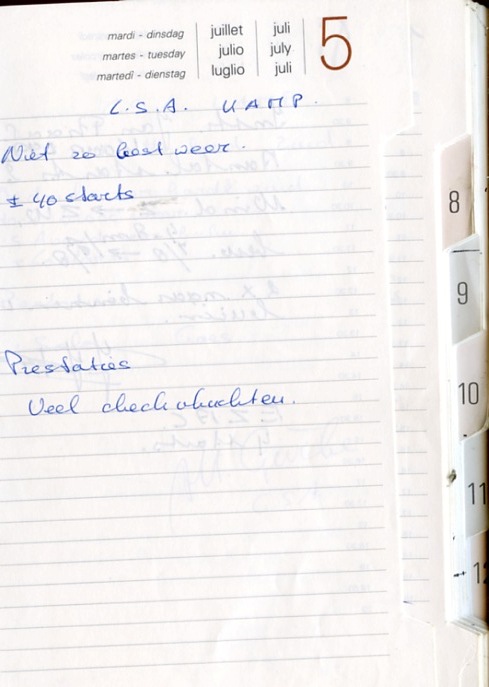 mardi - dinsdag juillet juli 5
martes - tuesday julio july
martedi - dienstag luglio juli
C.S.A. KAMP.
Niet zo best weer.
± 40 starts
8
9
Prestaties
10
Veel checkvluchten.
11
12